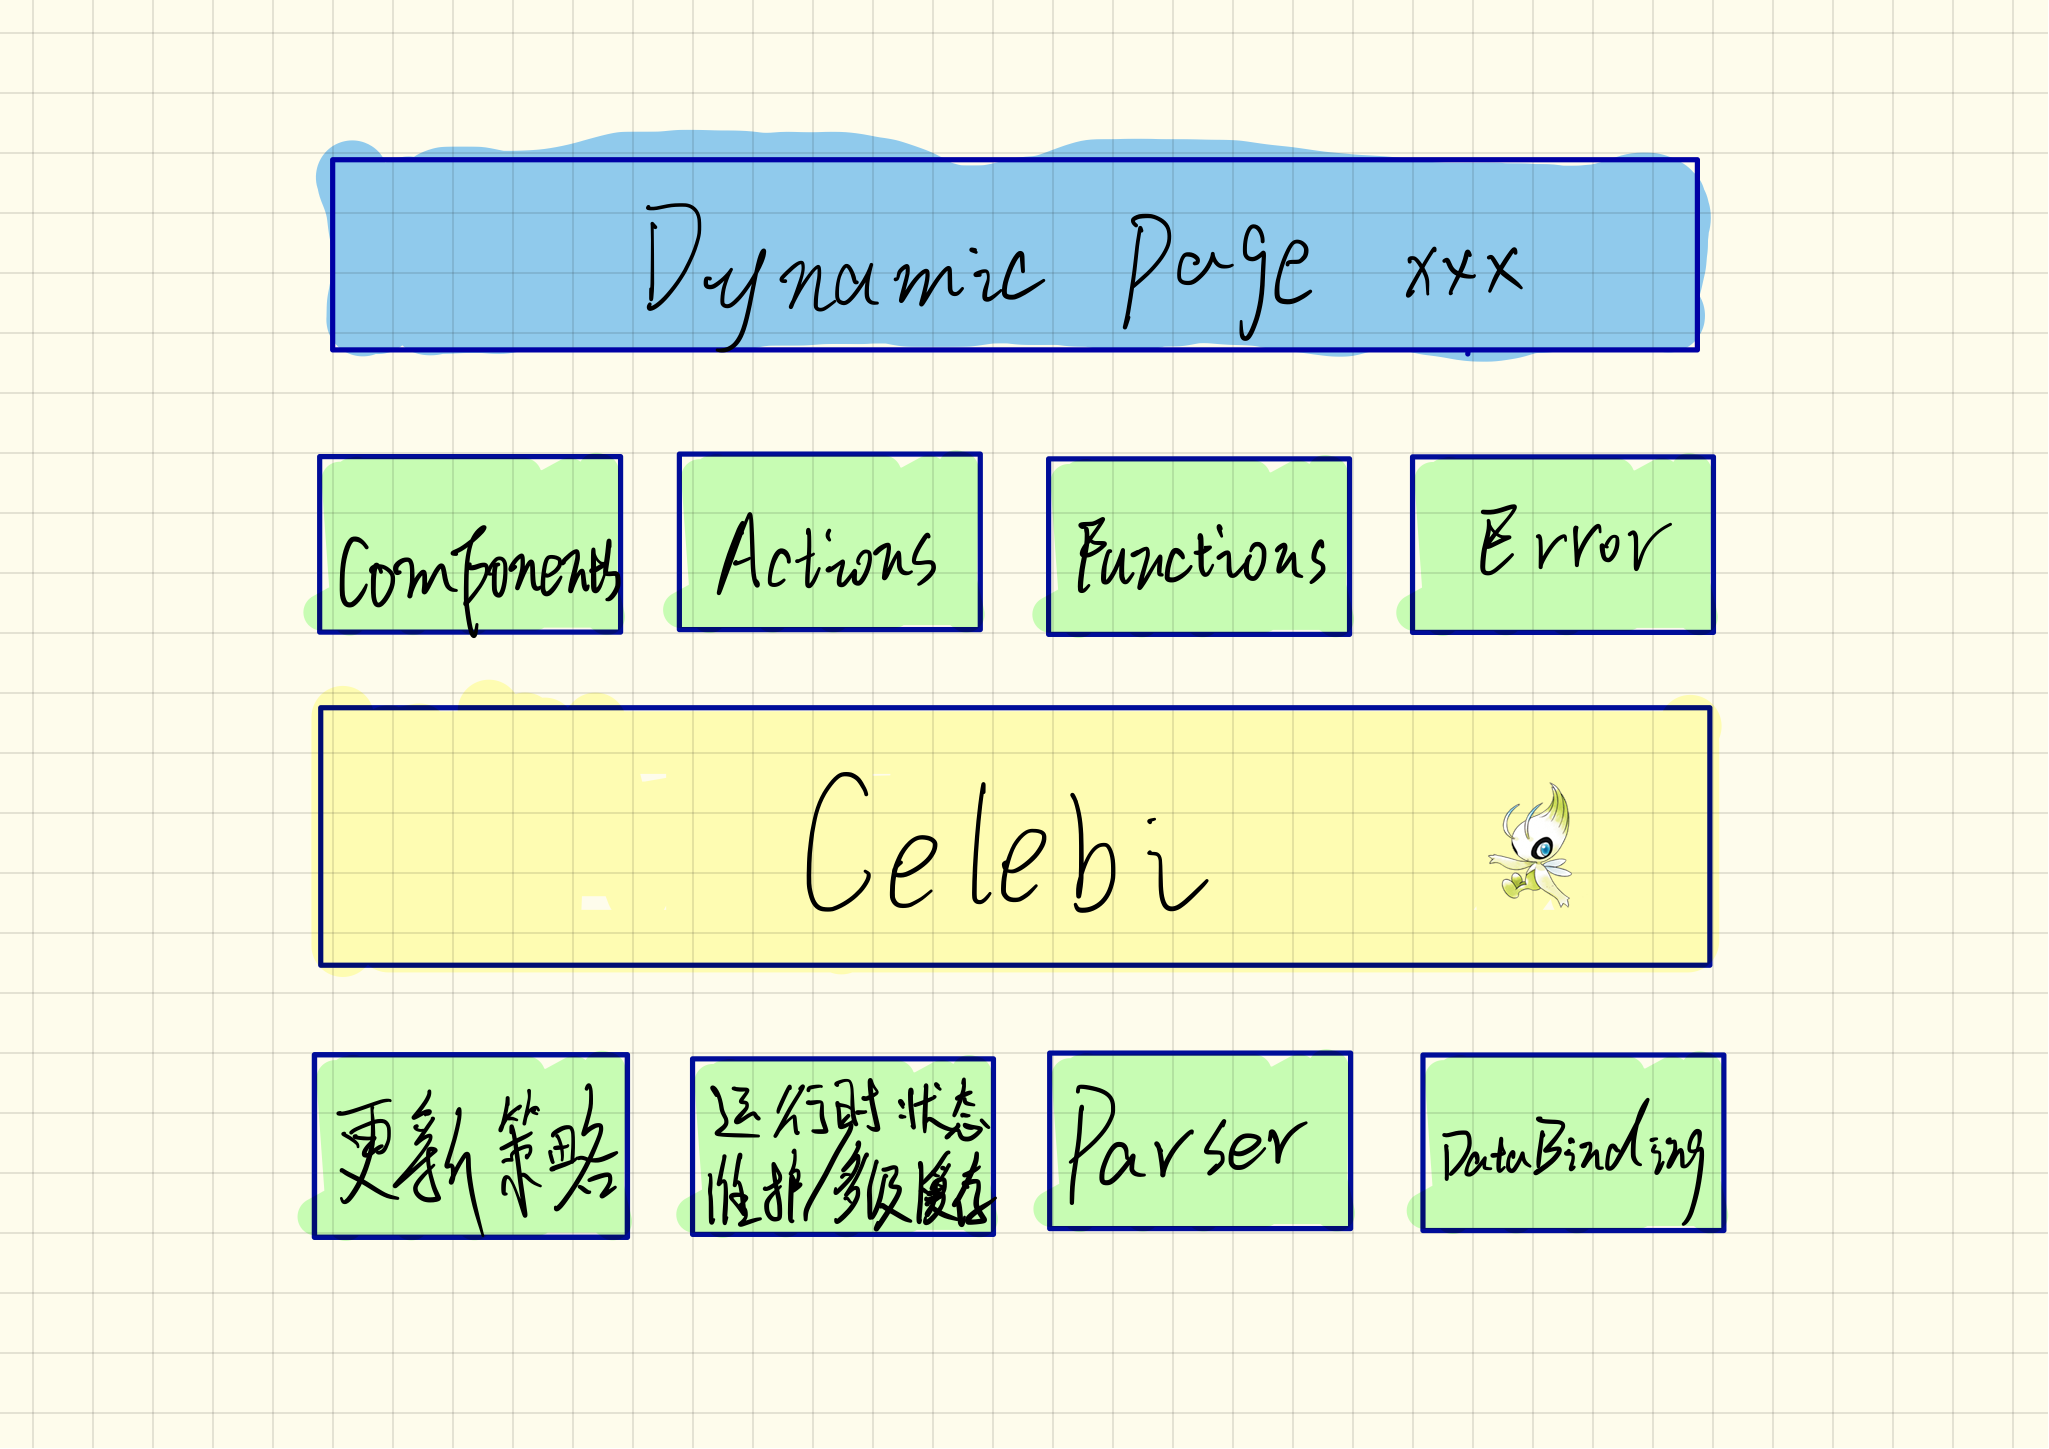 Dynamic Page xxx
Components
Actions
Functions
Error
Celebi
更新策略
运行时状态
维护/多级缓存
Parser
DataBinding